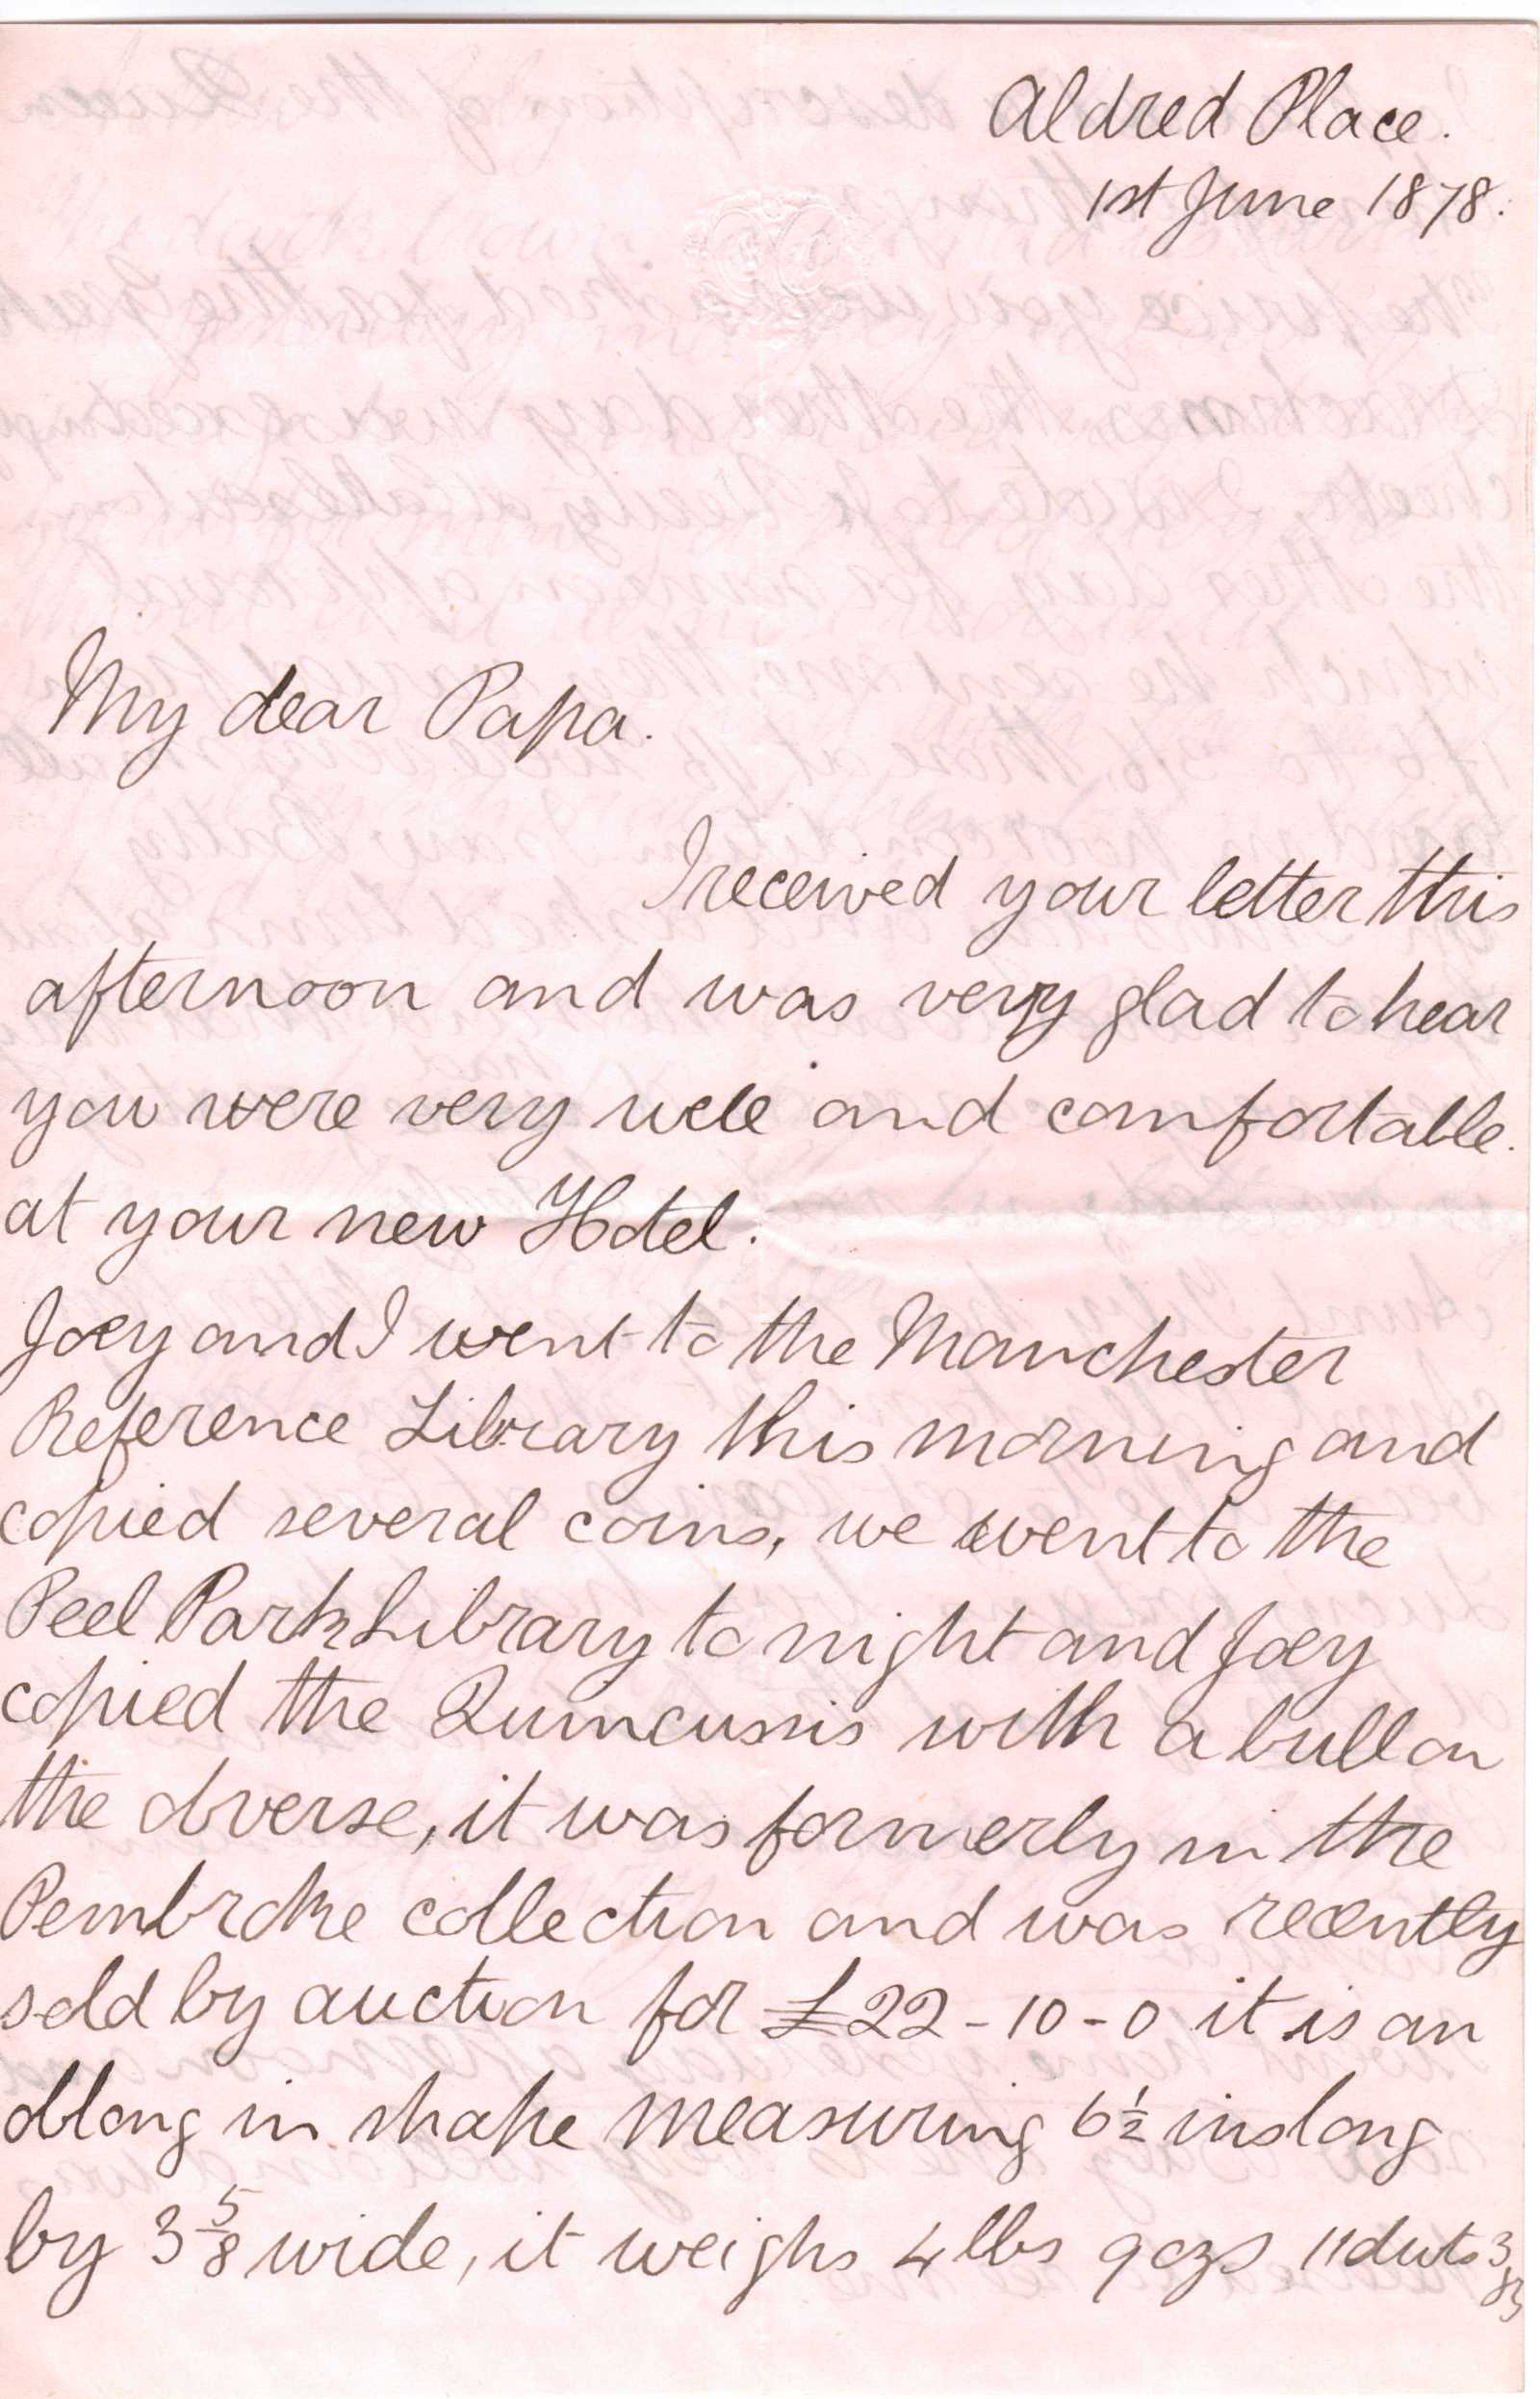 Aldred Place.
1st June 1878.
My dear Papa.
I received your letter this
afternoon and was very glad to hear
you were very well and comfortable.
at your new Hotel.
Joey and I went to the Manchester
Reference Library this morning and
copied several coins, we went to the
Peel Park Library to night and Joey
copied the Quincussis with a bull on
the obverse, it was formerly in the
Pembroke collection and was recently
sold by auction for £22-10-0 it is an
oblong in shape measuring 6½ ins long
by 3⅝ wide, it weighs 4 lbs 9 ozs 11 dwts 3